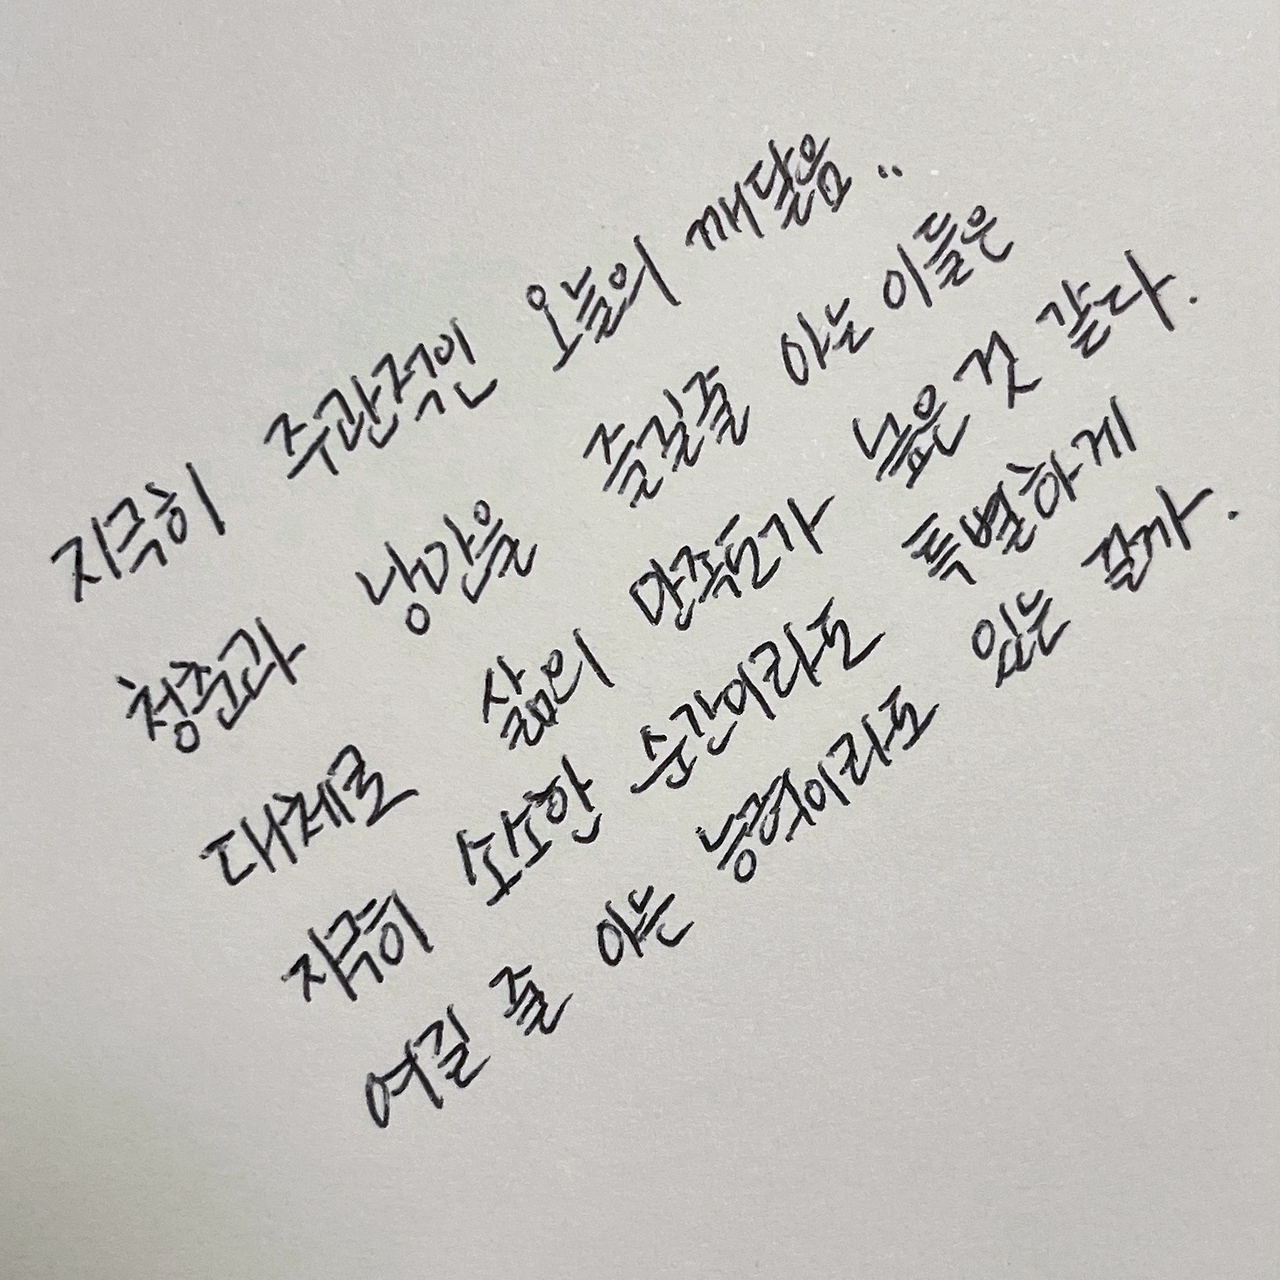 지극히 주관적인 오늘의 깨달음..
청춘과 낭만을 즐길줄 아는 이들은
대체로 삶의 만족도가 높은 것 같다.
지극히 소소한 순간이라도 특별하게
여길 줄 아는 능력이라도 있는 걸까.